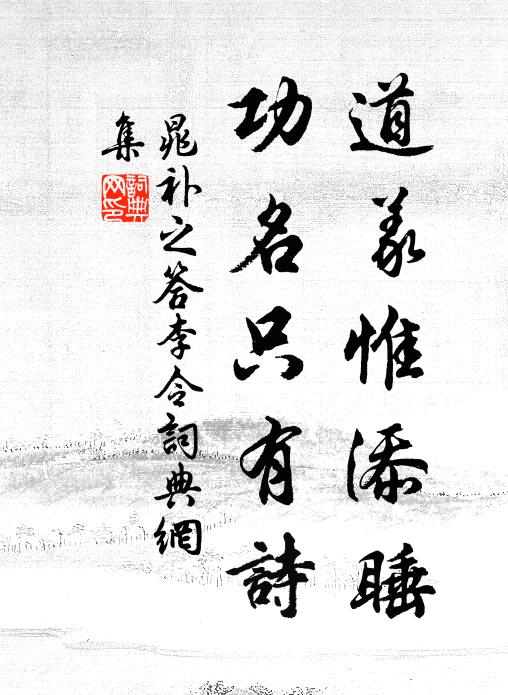 道義惟添睡
功名只有詩
晁補之答李令詞典網
集
詞典
网印